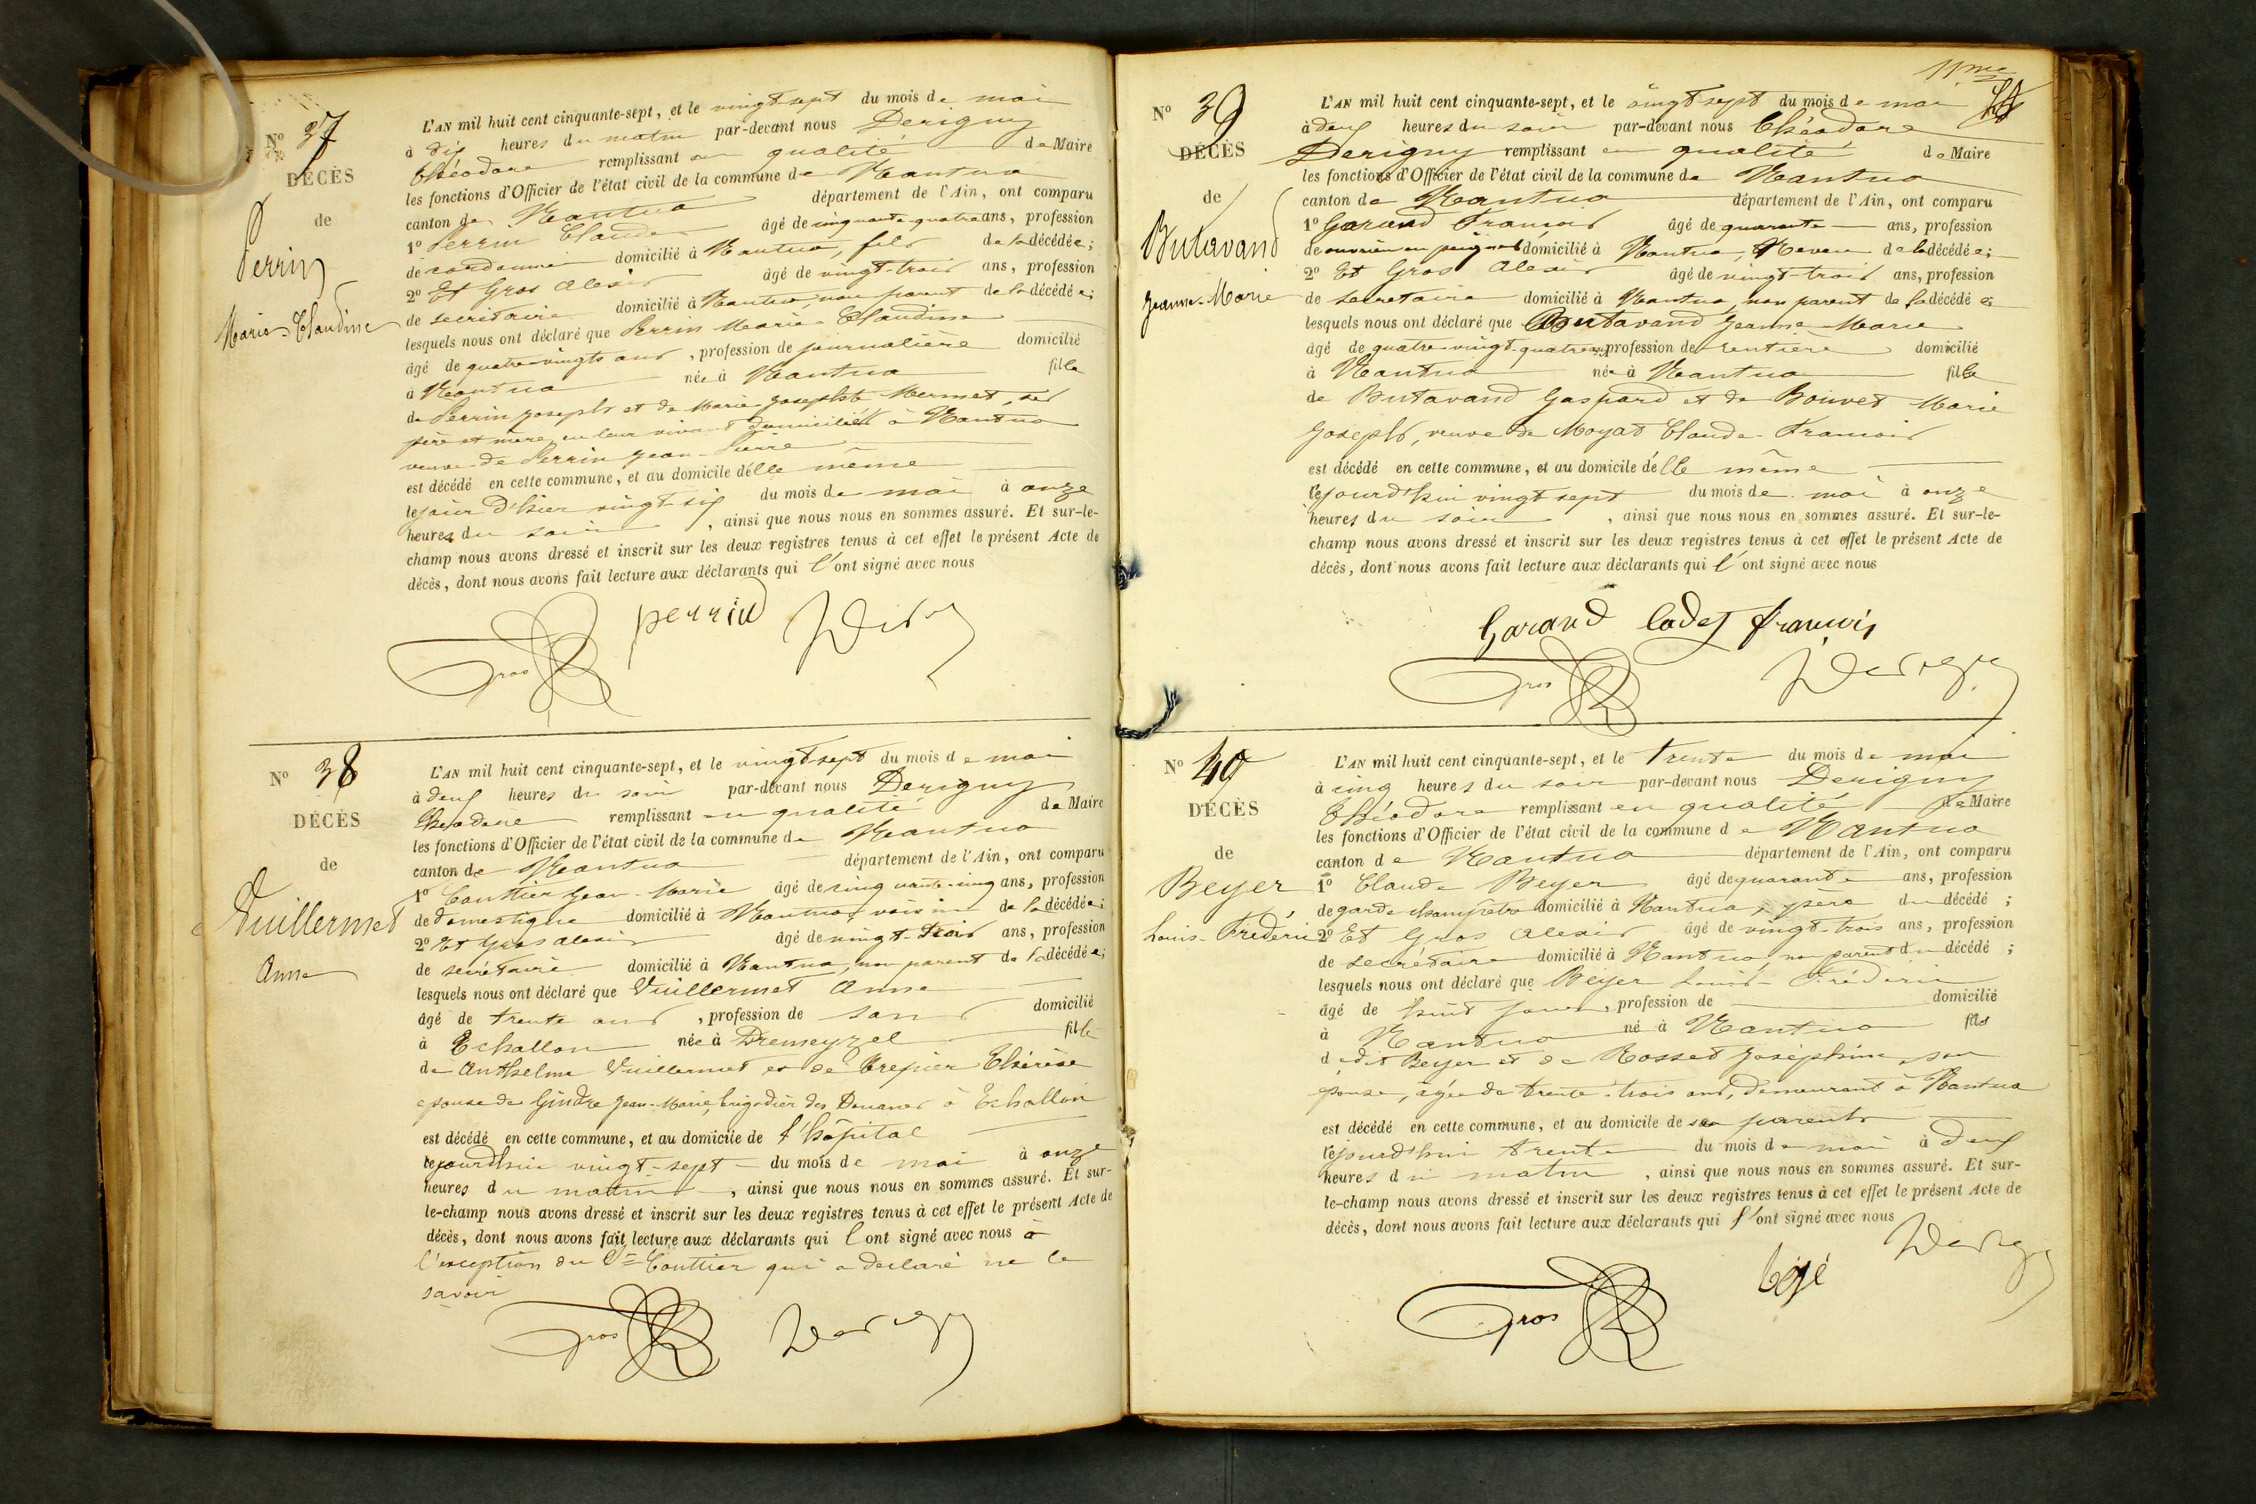 N° 37
DÉCÈS
de
Perrin
Marie-Claudine
L'AN mil huit cent cinquante-sept, et le vingt sept du mois de mai
à dix heures du matin par-devant nous Derigny
théodore remplissant en qualité de Maire
les fonctions d'Officier de l'état civil de la commune de Nantua
canton de Nantua département de l'Ain, ont comparu
1° Perrin Claude âgé de cinquante quatre ans, profession
de cordonnier domicilié à Nantua, fils de la décédée;
2° Et Gros alexis âgé de vingt-trois ans, profession
de secrétaire domicilié à Nantua, non parent de la décédée;
lesquels nous ont déclaré que Perrin Marie-Claudine
âgé de quatre-vingts ans, profession de journalière domicilié
à Nantua née à Nantua fille
de Perrin joseph et de Marie-josephte Mermet, ses
père et mère, en leur vivant domiciliés à Nantua
veuve de Perrin jean-Pierre
est décédé en cette commune, et au domicile d'elle même
le jour d'hier vingt-six du mois de mai à onze
heures du soir, ainsi que nous nous en sommes assuré. Et sur-le-
champ nous avons dressé et inscrit sur les deux registres tenus à cet effet le présent Acte de
décès, dont nous avons fait lecture aux déclarants qui l'ont signé avec nous
perrin
Gros
N° 38
DÉCÈS
de
Vuillermet
Anne
L'AN mil huit cent cinquante-sept, et le vingt-sept du mois de mai
à deux heures du soir par-devant nous Derigny
théodore remplissant en qualité de Maire
les fonctions d'Officier de l'état civil de la commune de Nantua
canton de Nantua département de l'Ain, ont comparu
1° Couttier jean-Marie âgé de cinquante-cinq ans, profession
de domestique domicilié à Nantua, voisin de la décédée;
2° Et Gros alexis âgé de vingt-trois ans, profession
de secrétaire domicilié à Nantua, non parent de la décédée;
lesquels nous ont déclaré que Vuillermet Anne
âgé de trente ans, profession de sans domicilié
à Echallon née à Dremeyzel fille
de Anthelme Vuillermet et de Crepier Thérèse
épouse de Gindre jean-Marie, brigadier des Douanes à Echallon
est décédé en cette commune, et au domicile de l'hôpital
le jourd'hui vingt-sept du mois de mai à onze
heures du matin, ainsi que nous nous en sommes assuré. Et sur-
le-champ nous avons dressé et inscrit sur les deux registres tenus à cet effet le présent Acte de
décès, dont nous avons fait lecture aux déclarants qui l'ont signé avec nous à
l'exception du Sr Couttier qui a déclaré ne le
savoir
Gros
N° 39
DÉCÈS
de
Butavand
Jeanne-Marie
11me
L'AN mil huit cent cinquante-sept, et le vingt sept du mois de mai
à deux heures du soir par-devant nous théodore
Derigny remplissant en qualité de Maire
les fonctions d'Officier de l'état civil de la commune de Nantua
canton de Nantua département de l'Ain, ont comparu
1° Garand François âgé de quarante ans, profession
de ouvrier en peignes domicilié à Nantua, Neveu de la décédée;
2° Et Gros alexis âgé de vingt-trois ans, profession
de secrétaire domicilié à Nantua, non parent de la décédée
lesquels nous ont déclaré que Butavand Jeanne-Marie
âgé de quatre-vingt-quatre ans, profession de rentière domicilié
à Nantua née à Nantua fille
de Butavand Gaspard et de Bouvet Marie
joseph, veuve de Moyat Claude-François
est décédé en cette commune, et au domicile d'elle même
le jourd'hui vingt sept du mois de mai à onze
heures du soir, ainsi que nous nous en sommes assuré. Et sur-le-
champ nous avons dressé et inscrit sur les deux registres tenus à cet effet le présent Acte de
décès, dont nous avons fait lecture aux déclarants qui l'ont signé avec nous
Garand Cadet francois
Gros
Derigny
N° 40
DÉCÈS
de
Beyer
Louis-Frédéric
L'AN mil huit cent cinquante-sept, et le trente du mois de mai
à cinq heures du soir par-devant nous Derigny
théodore remplissant en qualité de Maire
les fonctions d'Officier de l'état civil de la commune de Nantua
canton de Nantua département de l'Ain, ont comparu
1° Claude Beyer âgé de quarante ans, profession
de garde champêtre domicilié à Nantua, père du décédé;
2° Et Gros alexis âgé de vingt-trois ans, profession
de secrétaire domicilié à Nantua, non parent du décédé;
lesquels nous ont déclaré que Beyer Louis-Frédéric
âgé de huit jours, profession de domicilié
à Nantua né à Nantua fils
dudit Beyer et de Rosset joséphine, son
épouse, âgée de trente-trois ans, demeurant à Nantua
est décédé en cette commune, et au domicile de ses parents
le jourd'hui trente du mois de mai à deux
heures du matin, ainsi que nous nous en sommes assuré. Et sur-
le-champ nous avons dressé et inscrit sur les deux registres tenus à cet effet le présent Acte de
décès, dont nous avons fait lecture aux déclarants qui l'ont signé avec nous
Gros
Derigny